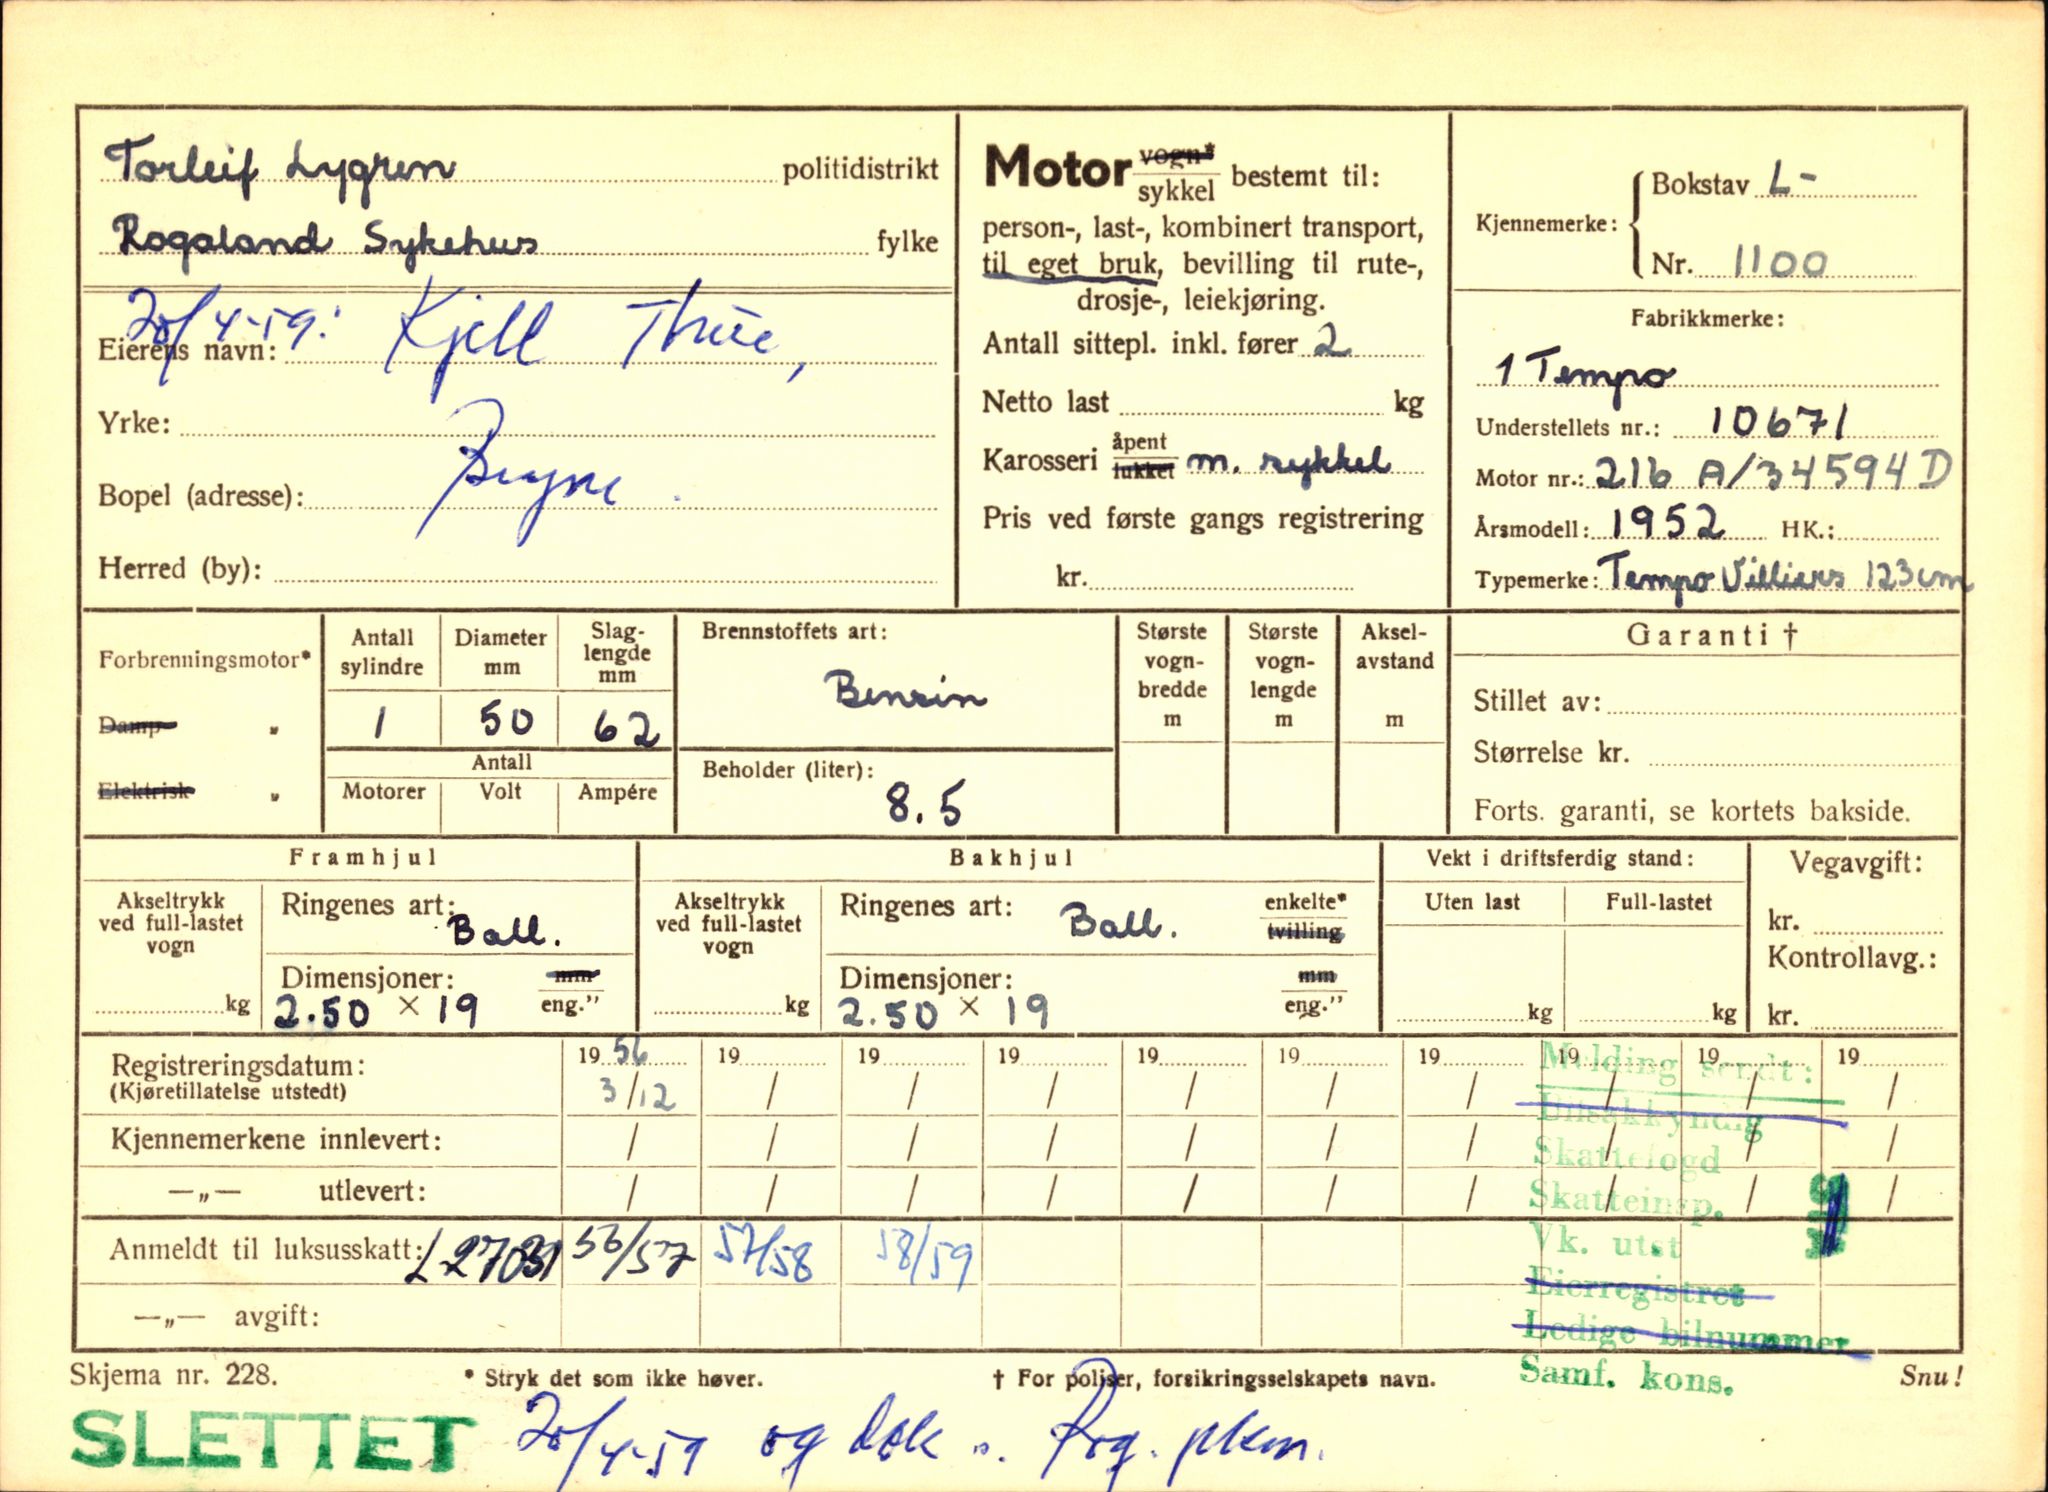 Torleif Lygren politidistrikt
Rogaland Sykehus fylke
20/4-59: Kjell Thue,
Eierens navn:
Yrke:
Bryne.
Bopel (adresse):
Herred (by):
Motor vogn* sykkel bestemt til:
person-, last-, kombinert transport,
til eget bruk, bevilling til rute-,
drosje-, leiekjøring.
Antall sittepl. inkl. fører 2
Netto last kg
Karosseri åpent lukket m. sykkel
Pris ved første gangs registrering
kr.
Kjennemerke: Bokstav L-
Nr. 1100
Fabrikkmerke:
1 Tempo
Understellets nr.: 10671
Motor nr.: 216 A/34594 D
Årsmodell: 1952 HK.:
Typemerke: Tempo Villiers 123 cm
Forbrenningsmotor*
Damp „
Elektrisk „
Antall sylindre
Diameter mm
Slag-lengde mm
1 50 62
Antall
Motorer Volt Ampére
Brennstoffets art:
Bensin
Beholder (liter):
8.5
Største vogn-bredde m
Største vogn-lengde m
Aksel-avstand m
Garanti †
Stillet av:
Størrelse kr.
Forts. garanti, se kortets bakside.
Framhjul
Akseltrykk ved full-lastet vogn
kg
Ringenes art: Ball.
Dimensjoner: mm
2.50 × 19 eng.”
Bakhjul
Akseltrykk ved full-lastet vogn
kg
Ringenes art: Ball. enkelte* tvilling
Dimensjoner: mm
2.50 × 19 eng.”
Vekt i driftsferdig stand:
Uten last Full-lastet
kg kg
Vegavgift:
kr.
Kontrollavg.:
kr.
Registreringsdatum: 19 56 19 19 19 19 19 19 19 19 19
(Kjøretillatelse utstedt) 3/12 / / / / / / / / /
Kjennemerkene innlevert: / / / / / / / / / /
—„— utlevert: / / / / / / / / / /
Anmeldt til luksusskatt: L 27031 56/57 57/58 58/59
—„— avgift:
Melding sendt:
Bilsakkyndig
Skattefogd
Skatteinsp.
Vk. utst
Eierregistret
Ledige bilnummer
Samf. kons.
Skjema nr. 228.
* Stryk det som ikke høver.
† For poliser, forsikringsselskapets navn.
Snu!
SLETTET 20/4-59 og dok s. Rog. pkm.